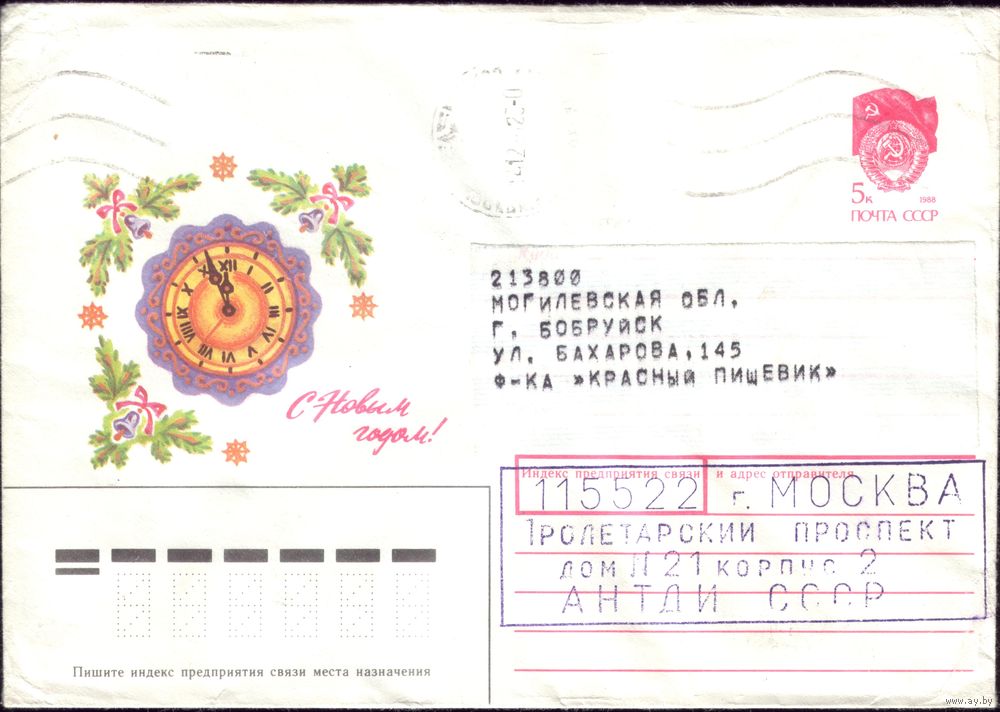 5к 1988
ПОЧТА СССР
XII I II III IV V VI VII VIII IX X
213800
МОГИЛЕВСКАЯ ОБЛ,
Г, БОБРУЙСК
УЛ, БАХАРОВА,145
Ф-КА »КРАСНЫЙ ПИЩЕВИК»
С Новым
годом!
Индекс предприятия связи и адрес отправителя
115522 г. МОСКВА
ПРОЛЕТАРСКИЙ ПРОСПЕКТ
ДОМ 21 КОРПУС 2
АНТДИ СССР
Пишите индекс предприятия связи места назначения
www.ay.by